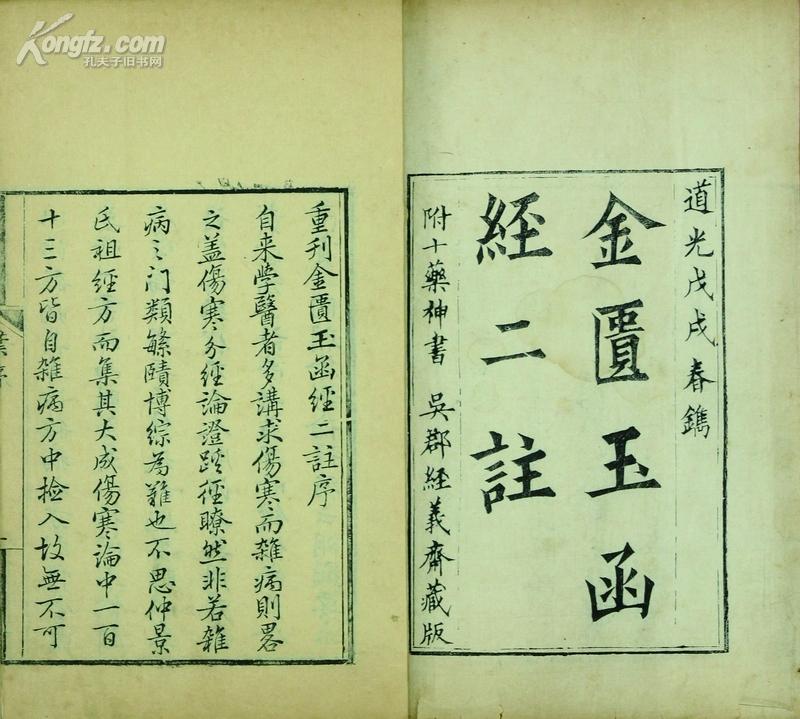 Kongfz.com
孔夫子旧书网
道光戊戌春鐫
金匱玉函
經二註
附十藥神書　吳郡經義齋藏版
重刊金匱玉函經二註序
自来学醫者多講求傷寒而雜病則畧
之盖傷寒分經論證蹊徑瞭然非若雜
病之门類繇賾博綜為難也不思仲景
氏祖經方而集其大成傷寒論中一百
十三方皆自雜病方中撿入故無不可